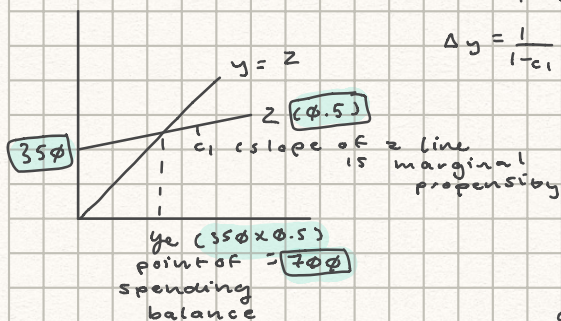 y = z
Δy = 1
1-c1
z (0.5)
350
c1 (slope of z line
is marginal
propensity
ye (350x0.5)
point of = 700
spending
balance